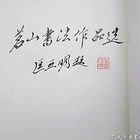 茗山书法作品选
匡亚明题